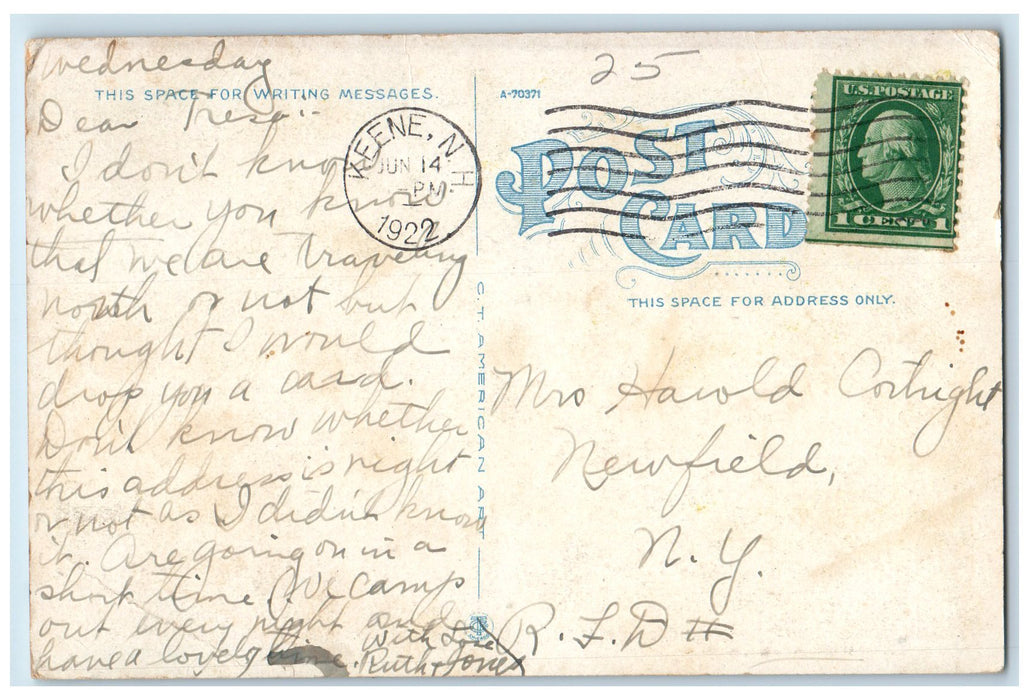 Wednesday
THIS SPACE FOR WRITING MESSAGES.
Dear Tresa:-
I don't know
whether you know
that we are traveling
north or not but
thought I would
drop you a card.
Don't know whether
this address is right
or not as I didn't know
it. Are going on in a
short time. We camp
out every night and
have a lovely time.
With Love
Ruth Jones
KEENE, N.H.
JUN 14
PM
1922
A-70371
25
U.S. POSTAGE
1 CENT 1
POST CARD
THIS SPACE FOR ADDRESS ONLY.
C.T. AMERICAN ART
Mrs Harold Cortright
Newfield,
N.Y.
R.F.D #